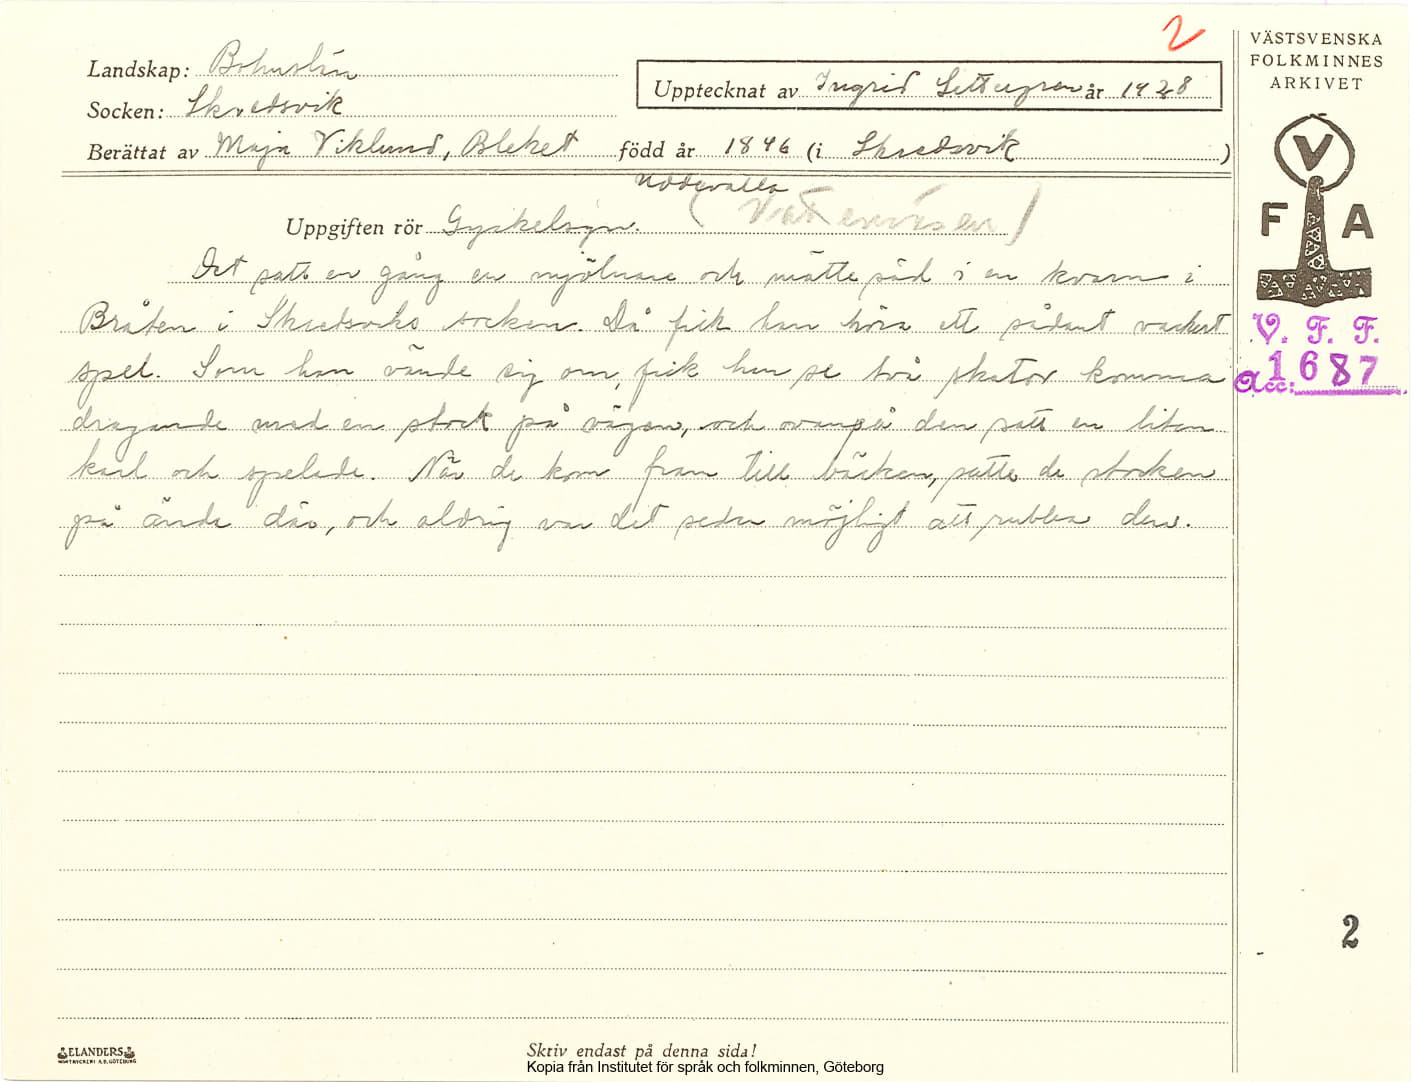 2
Landskap: Bohuslän
Socken: Skredsvik
Upptecknat av Ingrid Settergren år 1928
Berättat av Maja Viklund, Bleket född år 1846 (i Skredsvik)
Uddevalla
Uppgiften rör Gyckelsyn. (Vattenväsen)
Det satt en gång en mjölnare och mätte säd i en kvarn i
Bråten i Skredsviks socken. Då fick han höra ett sådant vackert
spel. Som han vände sig om, fick han se två skator komma
dragande med en stock på vägen, och ovanpå den satt en liten
karl och spelade. När de kom fram till bäcken, satte de stocken
på ända där, och aldrig var det sedan möjligt att rubba den.
VÄSTSVENSKA
FOLKMINNES
ARKIVET
V
F A
V. F. F.
acc: 1687
2
ELANDERS
BOKTRYCKERI A.B. GÖTEBORG
Skriv endast på denna sida!
Kopia från Institutet för språk och folkminnen, Göteborg